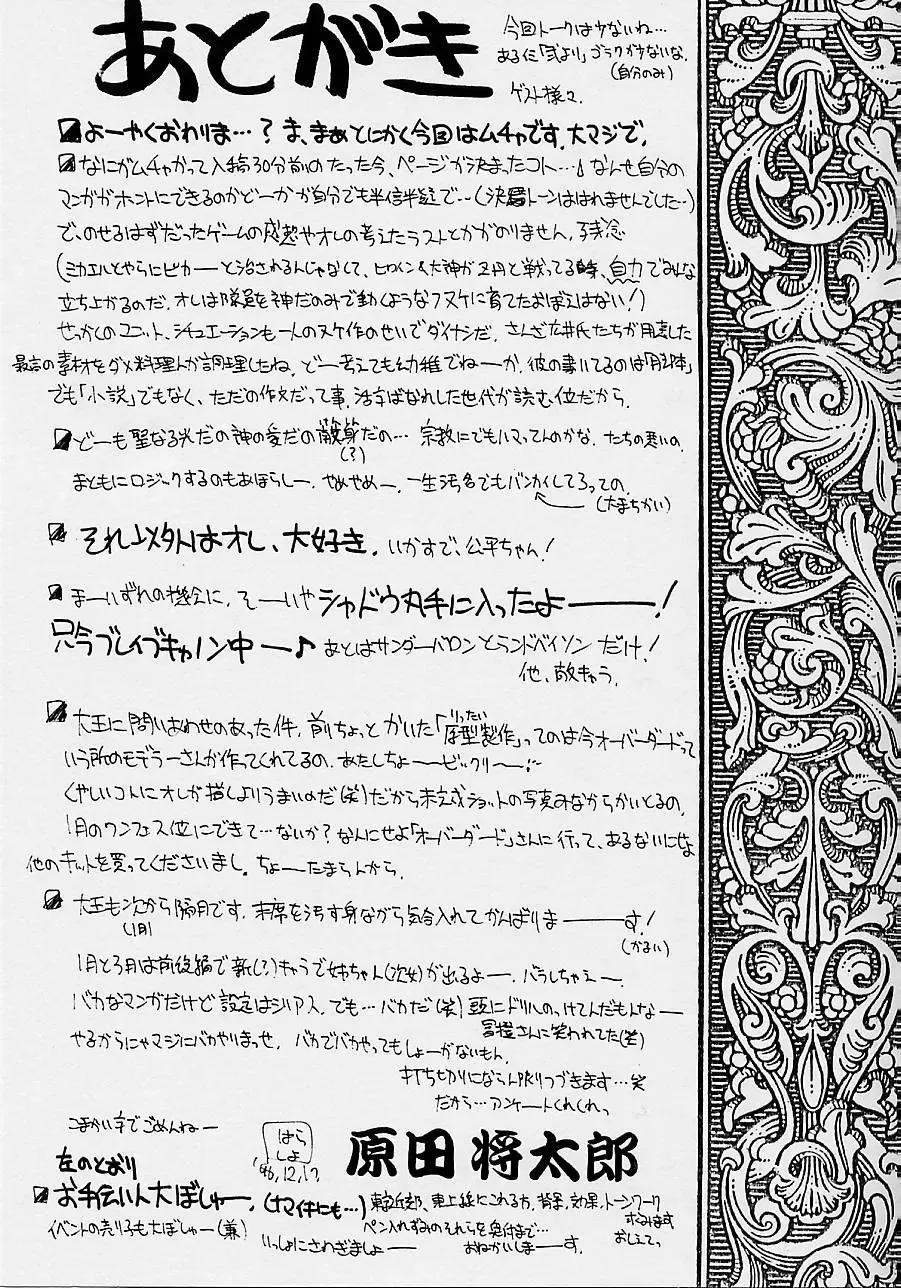 あとがき
今回トークは少ないね…
あるイミ「弐より」ゴラクが少ないな
(自分のみ)
ゲスト様々
よーやくおわりま…? ま、まぁとにかく今回はムチャです。大マジで。
なにがムチャかって入稿30分前のたった今、ページが決まったコト…♪なんせ自分の
マンガがホントにできるのかどーかが自分でも半信半疑で…(決局トーンははれませんでした…)
で、のせるはずだったゲームの感想やオレの考えたラストとかがのりません。残念
(ミカエルとやらにピカーーと治されるんじゃなくて、ヒロイン&大神が 円と戦ってる時、自力でみんな
立ち上がるのだ。オレは隊員を神だのみで動くようなフヌケに育てたおぼえはない!)
せっかくのユニット、シチュエーションも一人のヌケ作のせいでダイナシだ。さんざ広井氏たちが用意した
最高の素材をダメ料理人が調理したね。どー考えても幼稚でねーか。彼の書いてるのは「脚本」
でも「小説」でもなく、ただの作文だって事。活字ばなれした世代が読む位だから。
どーも聖なる光だの神の愛だの
(?)
だの… 宗教にでもハマッてんのかな。たちの悪いの
まともにロジックするのもあほらしー。やめやめー。一生汚名でもバンカイしてろっての。
(大まちがい)
それ以外はオレ、大好き。いかすで、公平ちゃん!
まーいずれの機会に、そーいや シャドウ丸手に入ったよーーー!
只今ブレイブキャノン中ー♪ あとはサンダーバロンとランドバイソンだけ!
他、敵キャラ。
大王に問いあわせのあった件。前ちょっとかいた「原型製作」ってのは今オーバーダードって
りったい
いう所のモデラーさんが作ってくれてるの。あたしちょーービックリー
くやしいコトにオレが描くよりうまいのだ(笑)だから未完成ショットの写真みながらかいとるの。
1月のワンフェス位にできて…ないか?なんにせよ「オーバーダード」さんに行って、あるないにせよ
他のキットを買ってくださいまし。ちょーーたまらんから。
大王も次から隔月です。末席を汚す身ながら気合入れてがんばりまーーーす!
(1月)
(かるい)
1月と3月は前後編で新(?)キャラで姉ちゃん(次女)が出るよーー。バラしちゃえー
バカなマンガだけど設定はシリアス。でも…バカだ(笑)頭にドリルのっけてんだもんなー
冨樫さんに笑われてた(笑)
やるからにゃマジにバカやりまっせ。バカでバカやってもしょーがないもん。
打ち切りにならん限りつづきます…笑
だから…アンケートくれくれっ
こまかい字でごめんねー
はら
しょ
'96.12.17
原田将太郎
左のとおり
お手伝い人大ぼしゅー。(ナマイキにも…)東京近郊、東上線にこれる方。背景、効果、トーンワーク
ペン入れずみのそれらを受付まで…
イベントの売り子も大ぼしゅー(兼)
いっしょにさわぎましょーー
おねがいしまーーす。
おしえてっ